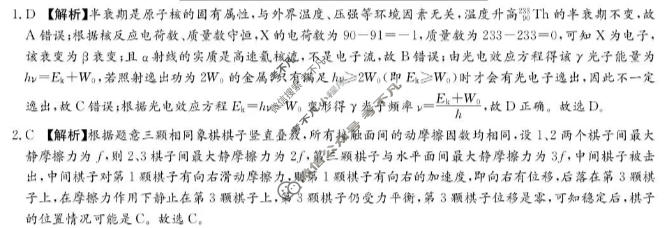 1. D 【解析】半衰期是原子核的固有属性,与外界温度、压强等环境因素无关,温度升高²³³₉₀Th 的半衰期不变,故
A 错误;根据核反应电荷数、质量数守恒,X 的电荷数为 90-91=-1,质量数为 233-233=0,可知 X 为电子,
该衰变为 β 衰变;且 α 射线的实质是高速氦核流,不是电子流,故 B 错误;由光电效应方程得该 γ 光子能量为
hν=Eₖ+W₀,若照射逸出功为 2W₀ 的金属,只有满足 hν≥2W₀(即 Eₖ≥W₀)时才会有光电子逸出,因此不一定
逸出,故 C 错误;根据光电效应方程 Eₖ=hν-W₀ 变形得 γ 光子频率 ν=(Eₖ+W₀)/h,故 D 正确。故选 D。
2. C 【解析】根据题意三颗相同象棋棋子竖直叠放,所有接触面间的动摩擦因数均相同,设 1、2 两个棋子间最大
静摩擦力为 f,则 2、3 棋子间最大静摩擦力为 2f,第三颗棋子与水平面间最大静摩擦力为 3f,中间棋子被击
出,中间棋子对第 1 颗棋子有向右滑动摩擦力,则第 1 颗棋子有向右的加速度,即向右有位移,后落在第 3 颗棋
子上,在摩擦力作用下静止在第 3 颗棋子上,第 3 颗棋子仍受力平衡,第 3 颗棋子位移是零,可知稳定后,棋子
的位置情况可能是 C。故选 C。